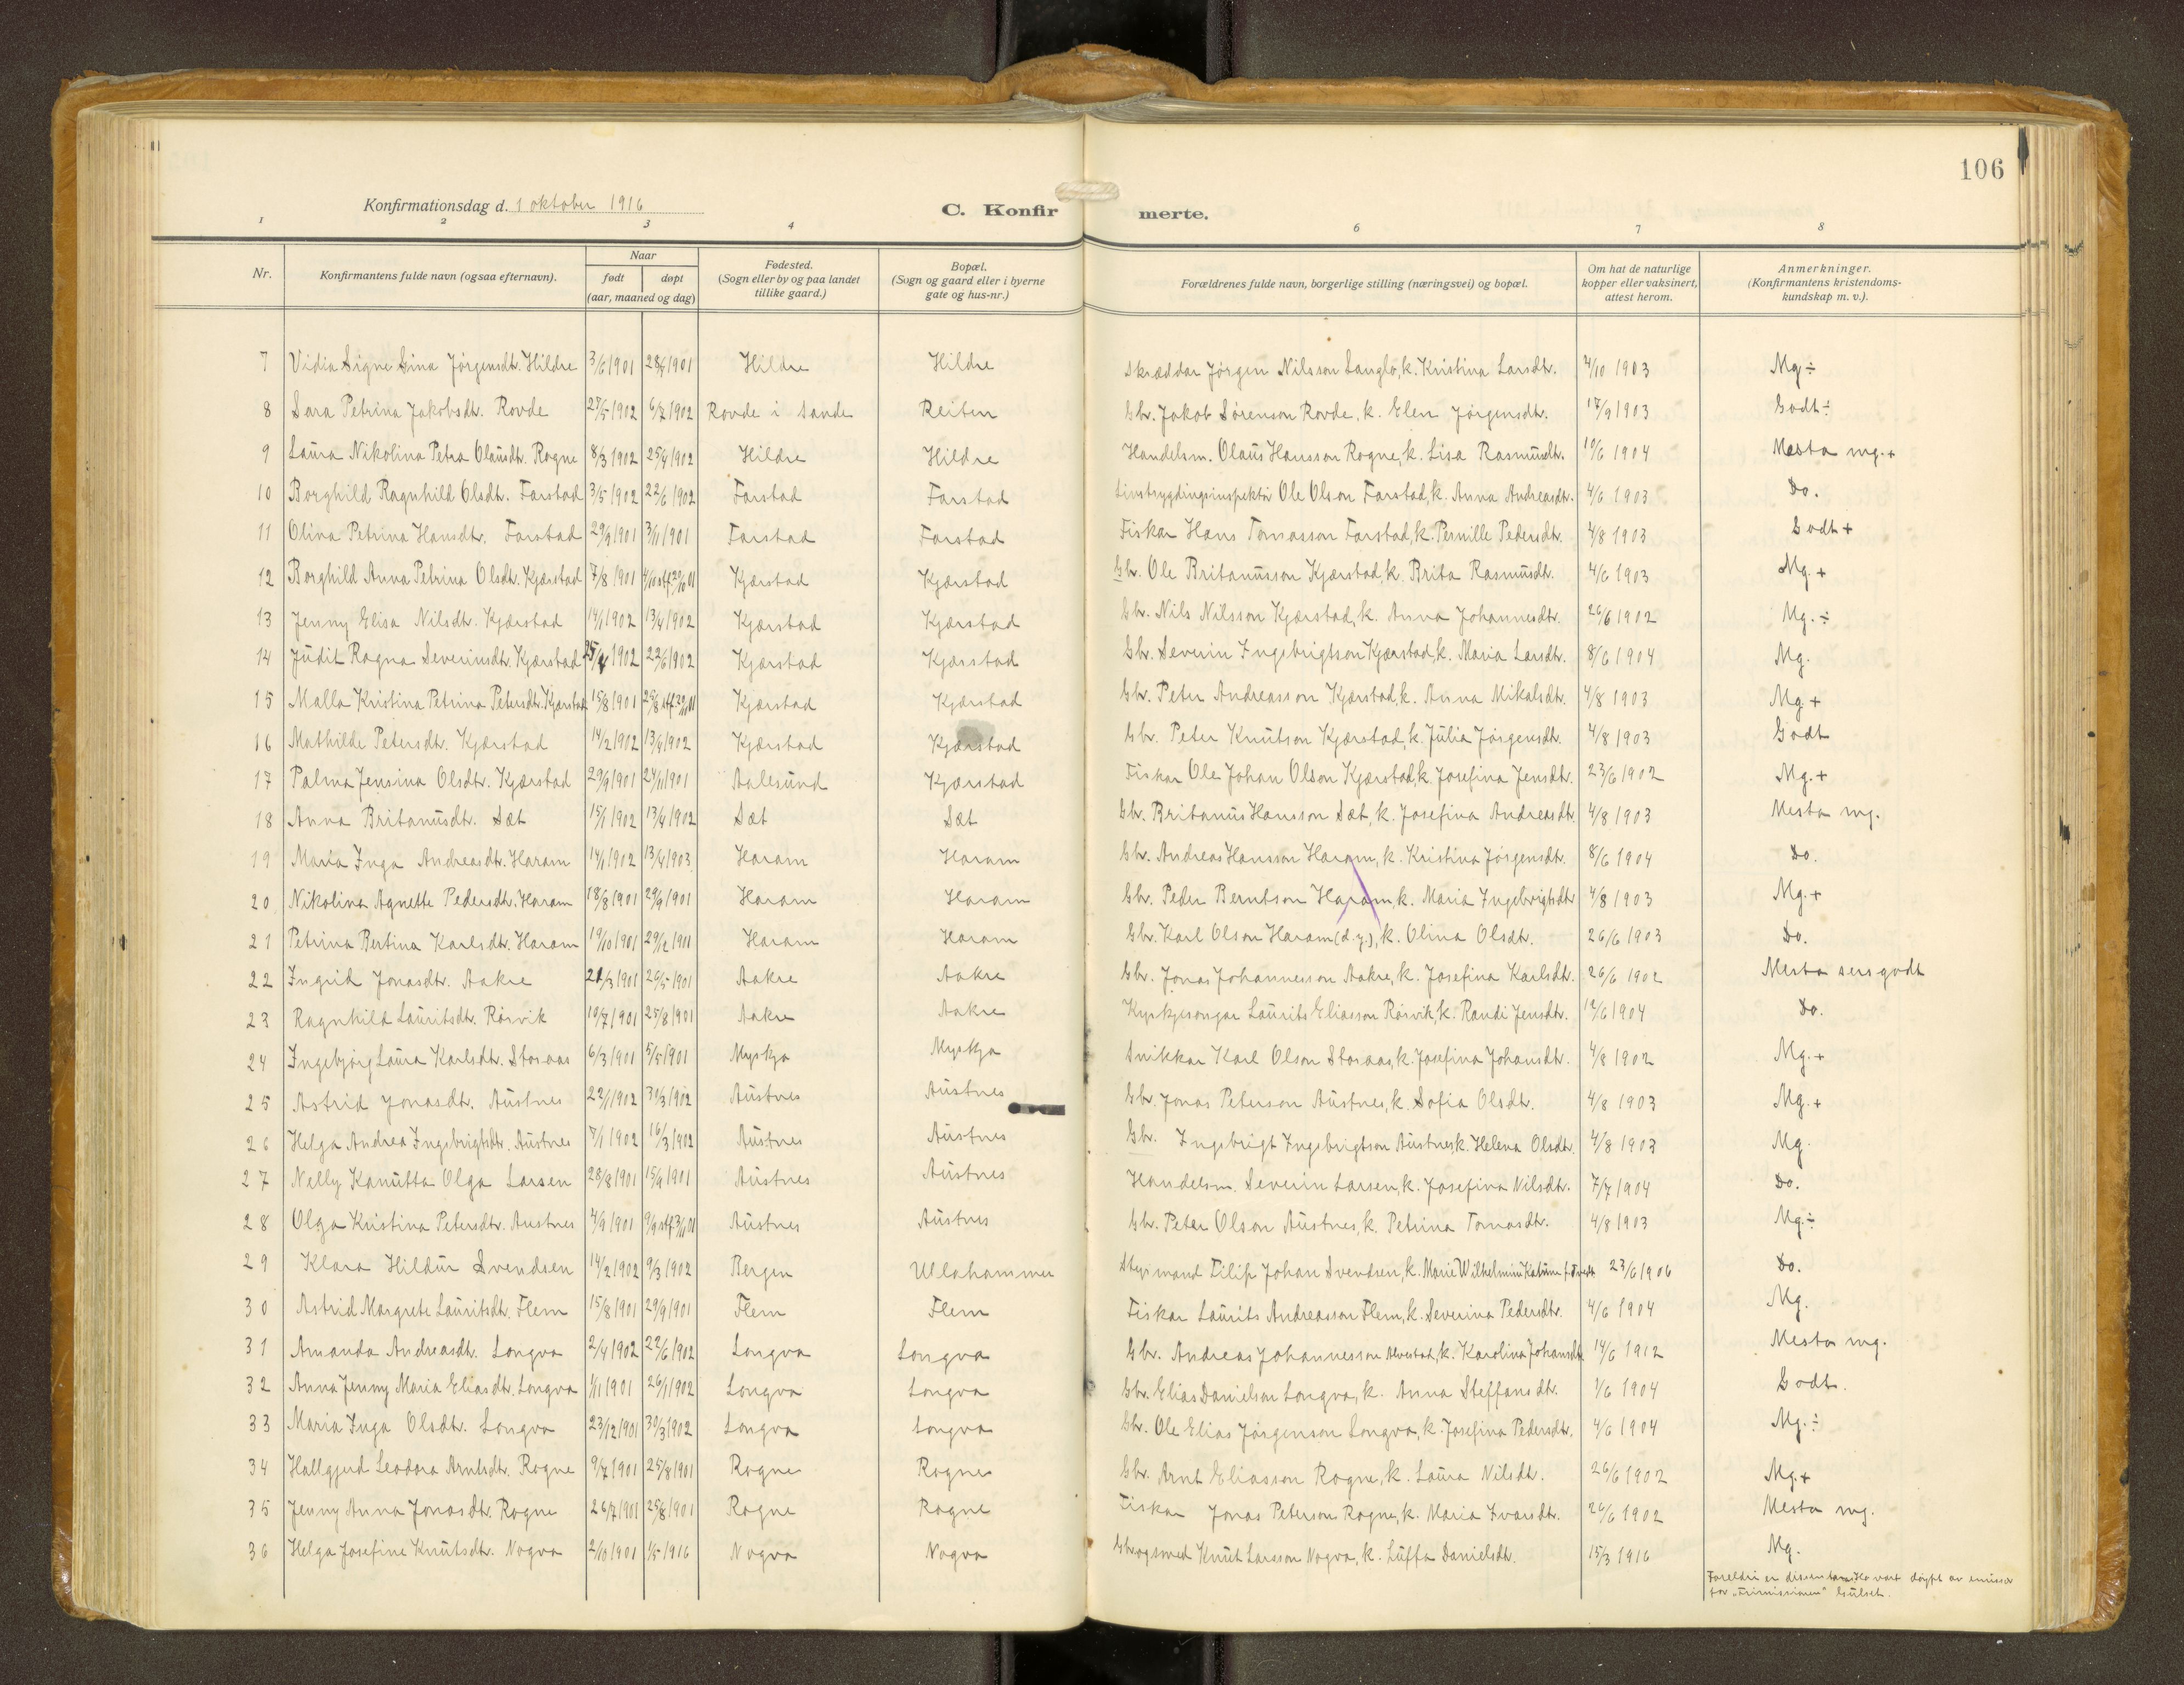 106
Konfirmationsdag d. 1 oktober 1916
C. Konfir merte.
1 2 3 4 6 7 8
Nr.
Konfirmantens fulde navn (ogsaa efternavn).
Naar
født døpt
(aar, maaned og dag)
Fødested.
(Sogn eller by og paa landet
tillike gaard.)
Bopæl.
(Sogn og gaard eller i byerne
gate og hus-nr.)
Forældrenes fulde navn, borgerlige stilling (næringsvei) og bopæl.
Om hat de naturlige
kopper eller vaksinert,
attest herom.
Anmerkninger.
(Konfirmantens kristendoms-
kundskap m. v.).
7 Vidia Signe Sina Jørgensdtr. Hildre 3/6 1901 28/7 1901 Hildre Hildre Skræddar Jørgen Nilsson Langlo, k. Kristina Larsdtr. 4/10 1903 Mg ÷
8 Sara Petrina Jakobsdtr. Rovde 27/5 1902 6/7 1902 Rovde i Sande Reiten Gbr. Jakob Sørenson Rovde, k. Elen Jørgensdtr. 17/9 1903 Godt ÷
9 Laura Nikolina Petra Olausdtr. Rogne 8/3 1902 25/4 1902 Hildre Hildre Handelsm. Olaus Hansson Rogne, k. Lisa Rasmusdtr. 10/6 1904 Mesta mg. +
10 Borghild Ragnhild Olsdtr. Farstad 3/5 1902 22/6 1902 Farstad Farstad Livstrygdingsinspektør Ole Olson Farstad, k. Anna Andreasdtr. 4/6 1903 Do.
11 Olina Petrina Hansdtr. Farstad 29/9 1901 3/11 1901 Farstad Farstad Fiskar Hans Tomasson Farstad, k. Pernille Pedersdtr. 4/8 1903 Godt +
12 Borghild Anna Petrina Olsdtr. Kjærstad 7/8 1901 Kjærstad Kjærstad Gbr. Ole Britanusson Kjærstad, k. Brita Rasmusdtr. 4/6 1903 Mg. +
13 Jenny Elisa Nilsdtr. Kjærstad 14/1 1902 13/4 1902 Kjærstad Kjærstad Gbr. Nils Nilsson Kjærstad, k. Anna Johannesdtr. 26/6 1902 Mg. ÷
14 Judit Ragna Severinsdtr. Kjærstad 1902 22/6 1902 Kjærstad Kjærstad Gbr. Severin Ingebrigtson Kjærstad, k. Maria Larsdtr. 8/6 1904 Mg.
15 Malla Kristina Petrina Petersdtr. Kjærstad 15/8 1901 Kjærstad Kjærstad Gbr. Peter Andreasson Kjærstad, k. Anna Mikalsdtr. 4/8 1903 Mg +
16 Mathilde Petersdtr. Kjærstad 14/2 1902 13/4 1902 Kjærstad Kjærstad Gbr. Peter Knutson Kjærstad, k. Julia Jørgensdtr. 4/8 1903 Godt
17 Palma Jensina Olsdtr. Kjærstad 29/9 1901 24/11 1901 Aalesund Kjærstad Fiskar Ole Johan Olson Kjærstad, k. Josefina Jensdtr. 23/6 1902 Mg. +
18 Anna Britanusdtr. Sæt 15/1 1902 13/4 1902 Sæt Sæt Gbr. Britanus Hansson Sæt, k. Josefina Andreasdtr. 4/8 1903 Mesta mg.
19 Maria Inga Andreasdtr. Haram 14/1 1902 13/4 1903 Haram Haram Gbr. Andreas Hansson Haram, k. Kristina Jørgensdtr. 8/6 1904 Do.
20 Nikolina Agnette Pedersdtr. Haram 18/8 1901 29/9 1901 Haram Haram Gbr. Peder Berntson Haram, k. Maria Ingebrigtsdtr 4/8 1903 Mg. +
21 Petrina Bertina Karlsdtr. Haram 19/10 1901 29/12 1901 Haram Haram Gbr. Karl Olson Haram (d.y.), k. Olina Olsdtr. 26/6 1903 Do.
22 Ingrid Jonasdtr. Aakre 21/3 1901 26/5 1901 Aakre Aakre Gbr. Jonas Johannesson Aakre, k. Josefina Karlsdtr. 26/6 1902 Mesta sers godt
23 Ragnhild Lauritsdtr. Rørvik 10/7 1901 25/8 1901 Aakre Aakre Kyrkjesongar Laurits Eliasson Rørvik, k. Randi Jensdtr. 12/6 1904 Do.
24 Ingebjørg Laura Karlsdtr. Storaas 6/3 1901 5/5 1901 Myskja Myskja Snikkar Karl Olson Storaas, k. Josefina Johansdtr. 4/8 1902 Mg. +
25 Astrid Jonasdtr. Austnes 22/1 1902 30/3 1902 Austnes Austnes Gbr. Jonas Peterson Austnes, k. Sofia Olsdtr. 4/8 1903 Mg. +
26 Helga Andrea Ingebrigtsdtr. Austnes 7/1 1902 16/3 1902 Austnes Austnes Gbr. Ingebrigt Ingebrigtson Austnes, k. Helena Olsdtr. 4/8 1903 Mg.
27 Nelly Kanutta Olga Larsen 28/8 1901 15/9 1901 Austnes Austnes Handelsm. Severin Larsen, k. Josefina Nilsdtr. 7/7 1904 Do.
28 Olga Kristina Petersdtr. Austnes 4/9 1901 Austnes Austnes Gbr. Peter Olson Austnes, k. Petrina Tomasdtr. 4/8 1903 Mg. ÷
29 Klara Hildur Svendsen 14/2 1902 9/3 1902 Bergen Ullahammer Styrmand Filip Johan Svendsen, k. Marie Wilhelmine 23/6 1906 Do.
30 Astrid Margrete Lauritsdtr. Flem 15/8 1901 29/9 1901 Flem Flem Fiskar Laurits Andreasson Flem, k. Severina Pedersdtr. 4/6 1904 Mg.
31 Amanda Andreasdtr. Longva 2/4 1902 22/6 1902 Longva Longva Gbr. Andreas Johannesson Alvestad, k. Karolina Johansdtr 14/6 1912 Mesta mg.
32 Anna Jenny Maria Eliasdtr. Longva 1/11 1901 26/1 1902 Longva Longva Gbr. Elias Danielson Longva, k. Anna Steffansdtr. 1/6 1904 Godt.
33 Maria Inga Olsdtr. Longva 23/12 1901 30/3 1902 Longva Longva Gbr. Ole Elias Jørgenson Longva, k. Josefina Pedersdtr. 4/6 1904 Mg. ÷
34 Hallgjerd Leodora Arntsdtr. Rogne 9/7 1901 25/8 1901 Rogne Rogne Gbr. Arnt Eliasson Rogne, k. Laura Nilsdtr. 26/6 1902 Mg. +
35 Jenny Anna Jonasdtr. Rogne 26/7 1901 25/8 1901 Rogne Rogne Fiskar Jonas Peterson Rogne, k. Maria Ivarsdtr. 26/6 1902 Mesta mg.
36 Helga Josefine Knutsdtr. Nogva 2/10 1901 1/5 1916 Nogva Nogva Gbr og smed Knut Larsson Nogva, k. Luffa Danielsdtr. 15/3 1916 Mg.
Foreldri er dissentarar. Ho vart døypt av
for